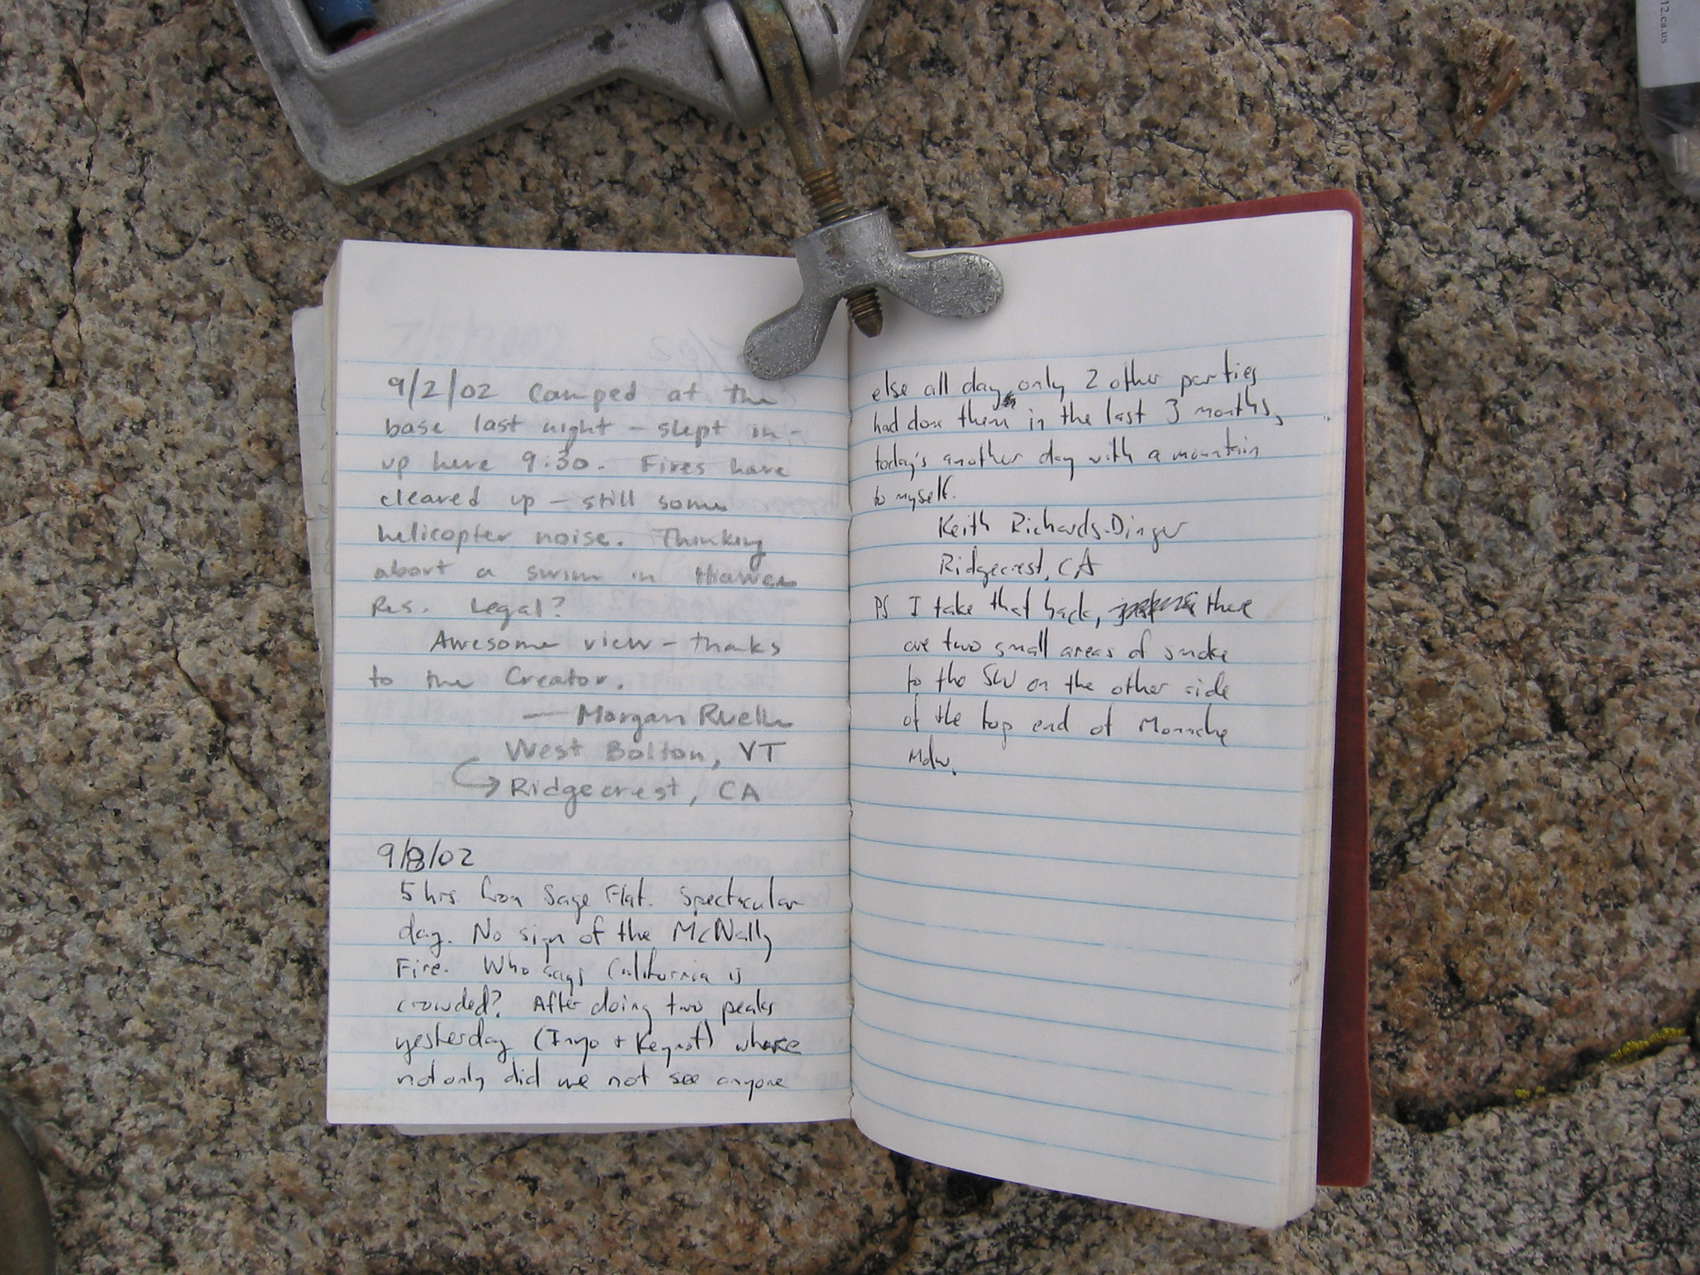 9/2/02 Camped at the
base last night – slept in –
up here 9:30. Fires have
cleared up – still some
helicopter noise. Thinking
about a swim in Haiwee
Res. Legal?
Awesome view – thanks
to the Creator.
— Morgan Ruelle
West Bolton, VT
→ Ridgecrest, CA
9/8/02
5 hrs from Sage Flat. Spectacular
day. No sign of the McNally
Fire. Who says California is
crowded? After doing two peaks
yesterday (Inyo + Keynot) where
not only did we not see anyone
else all day, only 2 other parties
had done them in the last 3 months,
today's another day with a mountain
to myself.
Keith Richards-Dinger
Ridgecrest, CA
PS I take that back, there
are two small areas of smoke
to the SW on the other side
of the top end of Monache
Mdw.
12.ca.us